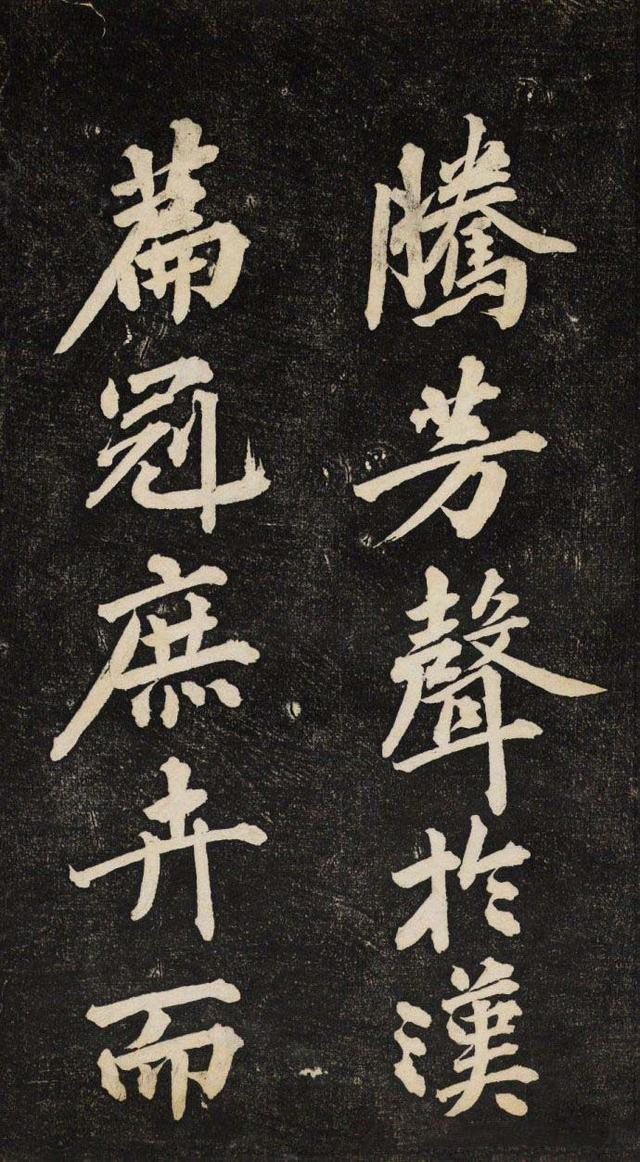 騰芳聲於漢
篇冠庶卉而